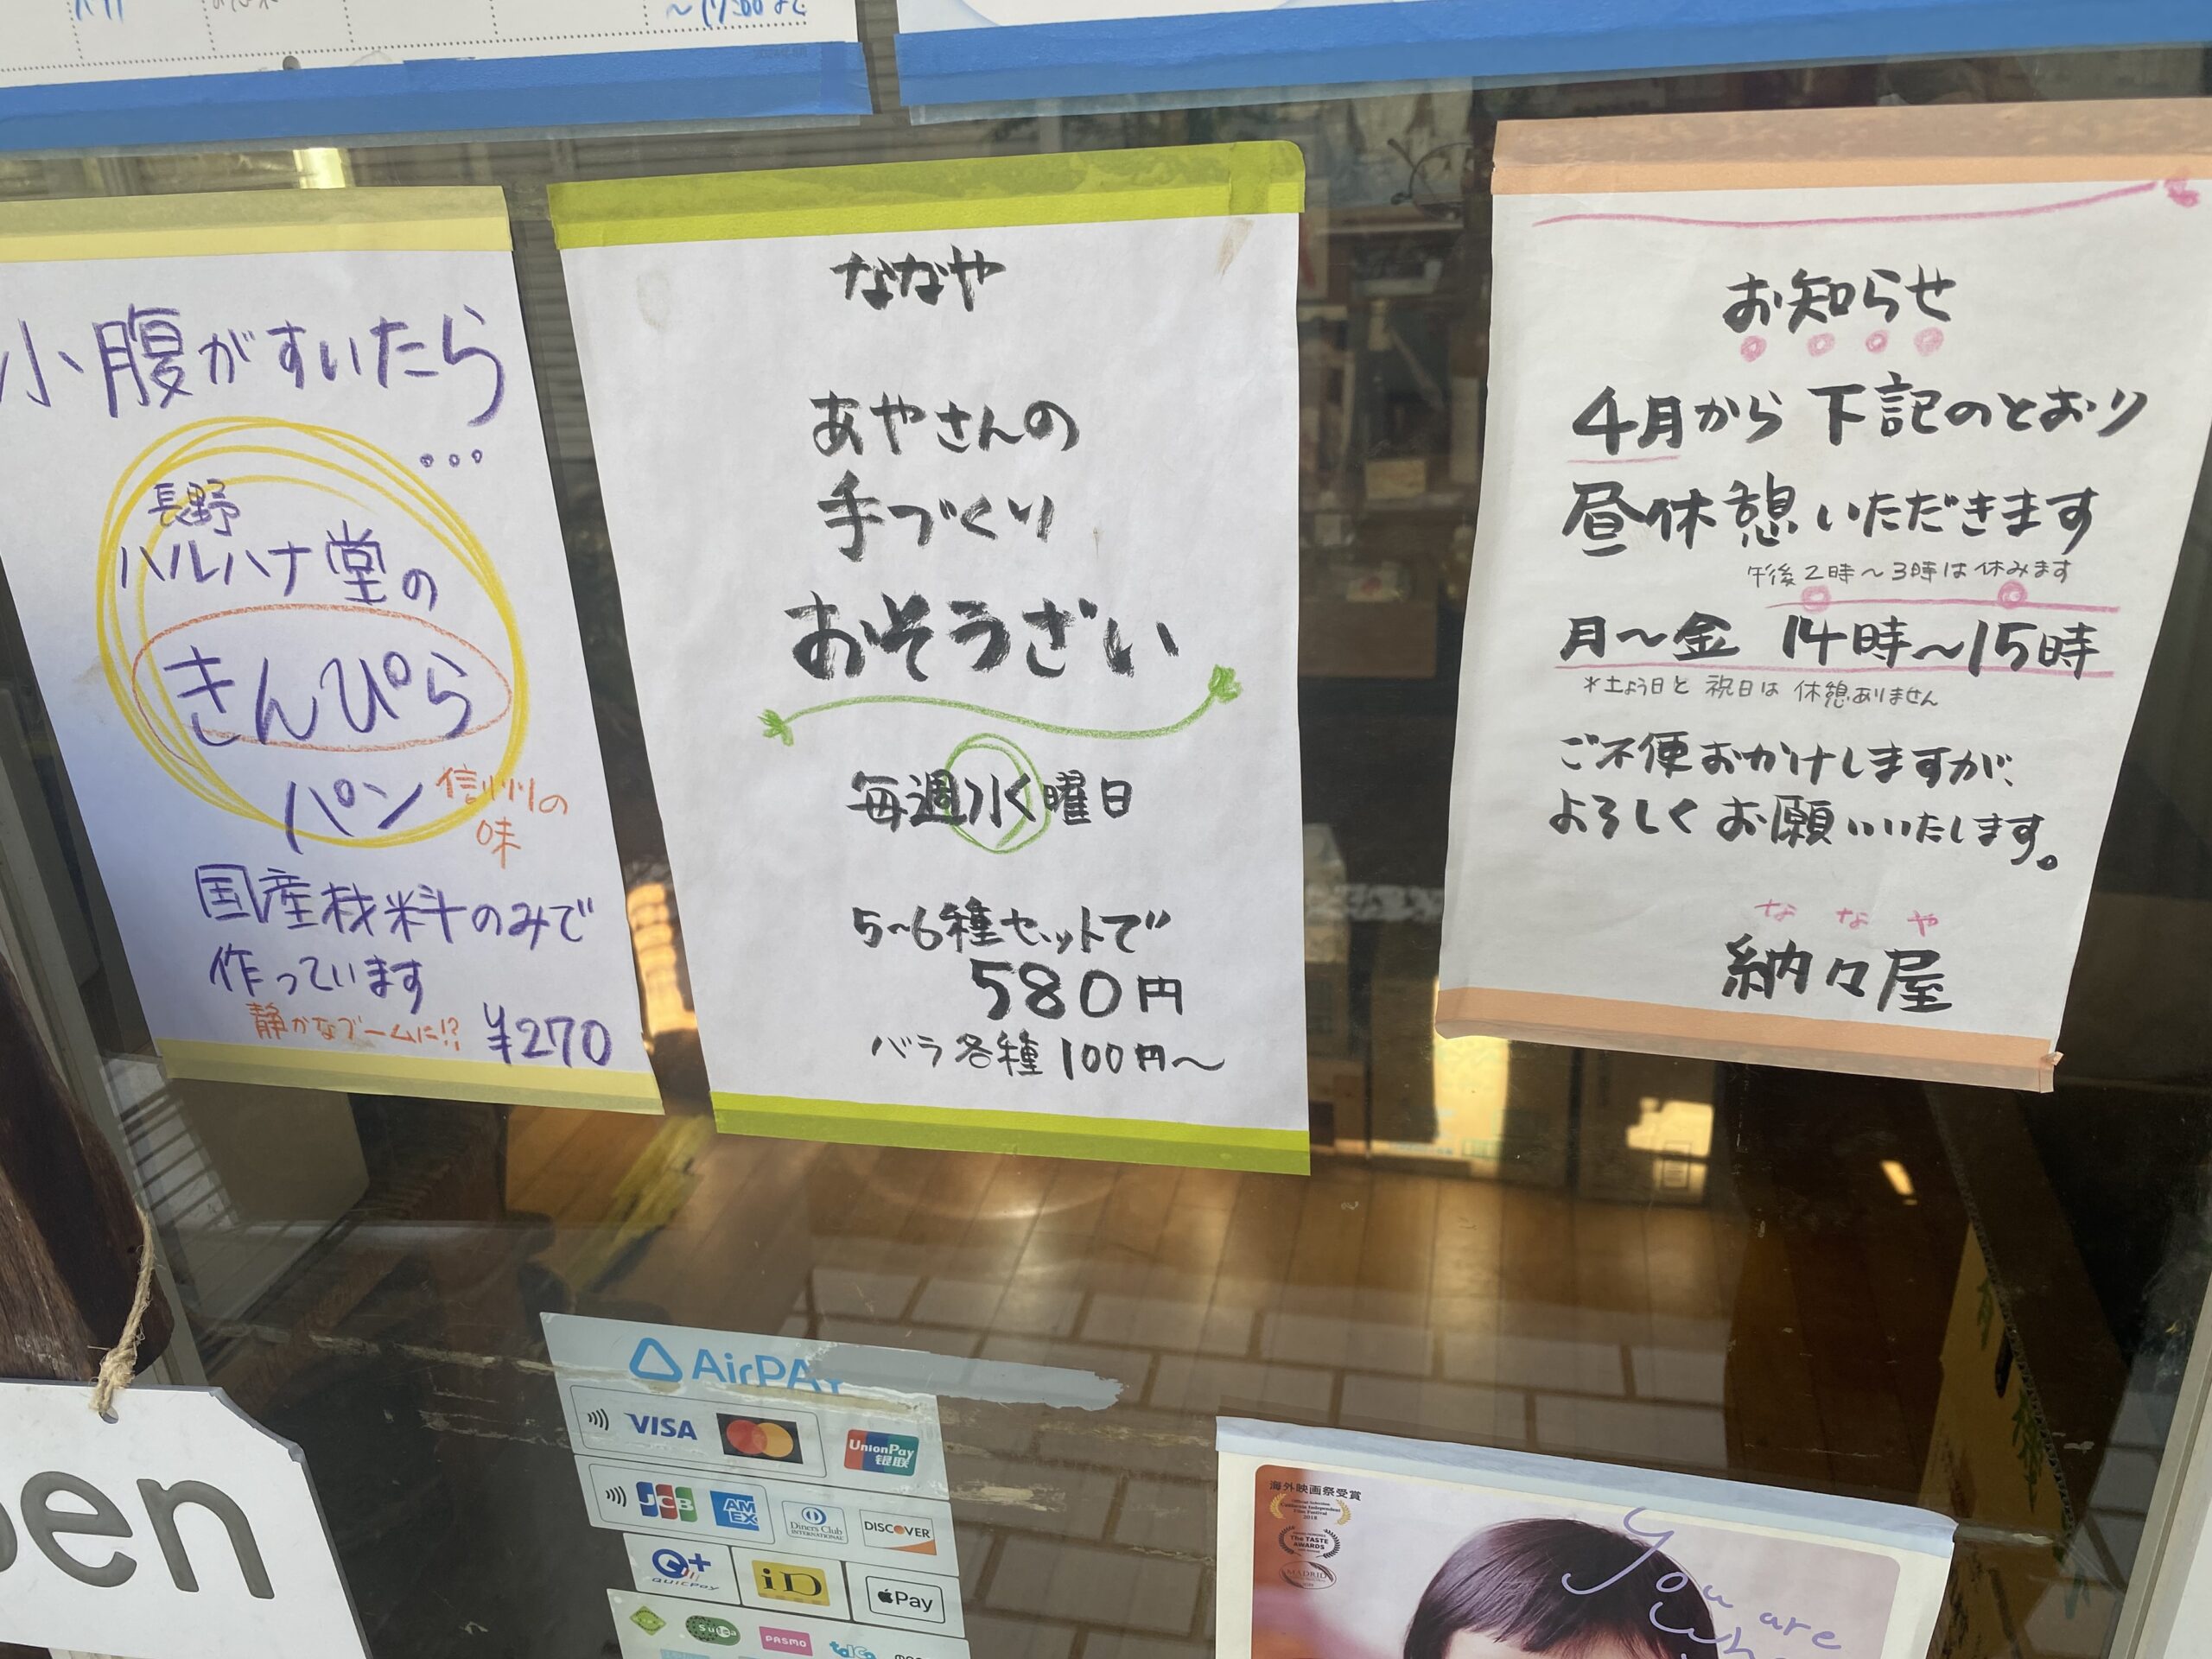 ~17:00まで
小腹がすいたら
...
長野
ハルハナ堂の
きんぴら
パン
信州の
味
国産材料のみで
作っています
静かなブームに!?
¥270
ななや
あやさんの
手づくり
おそうざい
毎週水曜日
5~6種セットで
580円
バラ各種100円~
お知らせ
4月から下記のとおり
昼休憩いただきます
午後2時~3時は休みます
月~金 14時~15時
*土よう日と祝日は休憩ありません
ご不便おかけしますが、
よろしくお願いいたします。
ななや
納々屋
en
AirPAY
VISA
UnionPay
银联
JCB
AMEX
Diners Club
INTERNATIONAL
DISCOVER
QUICPay
iD
Pay
Suica
PASMO
toica
海外映画祭受賞
2018
The TASTE
AWARDS
MADRID
You are